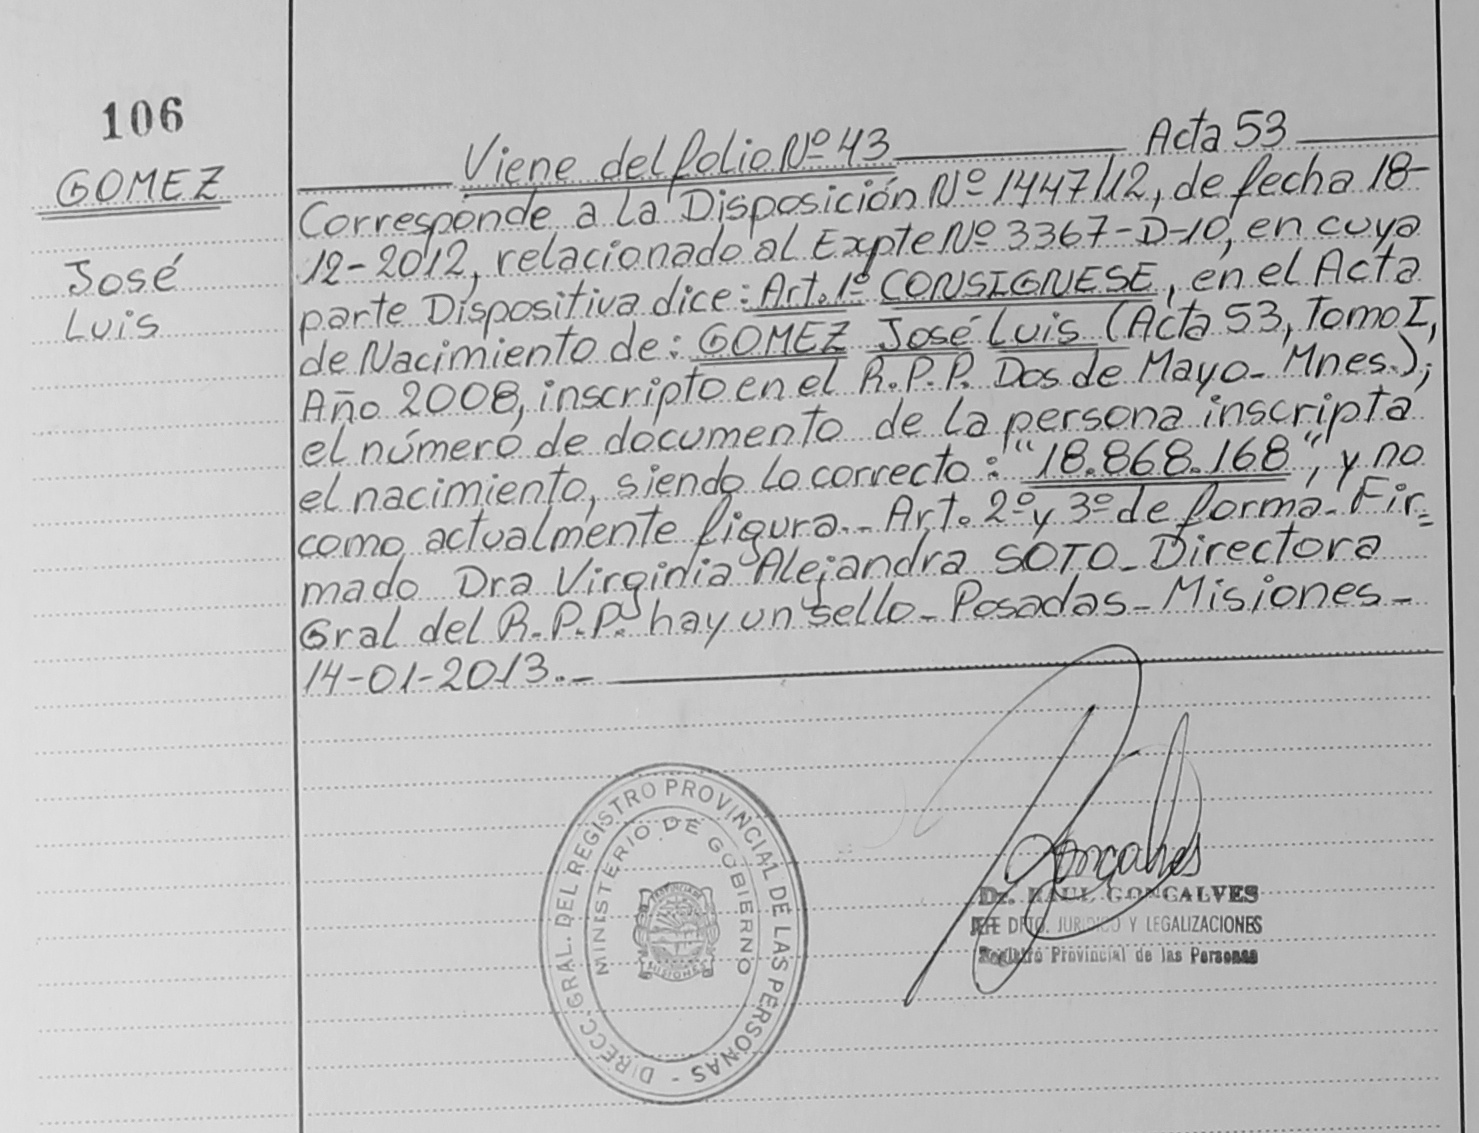 106
GOMEZ
José
Luis
Viene del folio Nº 43 Acta 53
Corresponde a la Disposición Nº 1447/12, de fecha 18-
12-2012, relacionado al Expte Nº 3367-D-10, en cuya
parte Dispositiva dice: Art. 1º CONSIGNESE, en el Acta
de Nacimiento de: GOMEZ José Luis (Acta 53, Tomo I,
Año 2008, inscripto en el R.P.P. Dos de Mayo- Mnes.);
el número de documento de la persona inscripta
el nacimiento, siendo lo correcto: "18.868.168", y no
como actualmente figura.- Art. 2º y 3º de forma- Fir=
mado Dra Virginia Alejandra SOTO- Directora
Gral del R.P.P. hay un sello- Posadas- Misiones-
14-01-2013.-
DIRECC. GRAL. DEL REGISTRO PROVINCIAL DE LAS PERSONAS -
MINISTERIO DE GOBIERNO
MISIONES
Goncalves
Dr. RAUL GONCALVES
JEFE DPTO. JURIDICO Y LEGALIZACIONES
Registro Provincial de las Personas